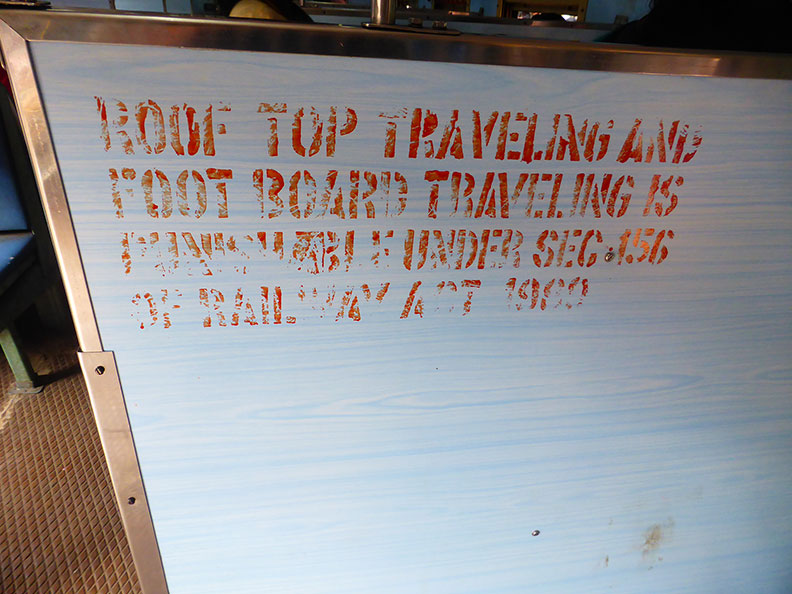 ROOF TOP TRAVELING AND
FOOT BOARD TRAVELING IS
PUNISHABLE UNDER SEC 156
OF RAILWAY ACT 1989